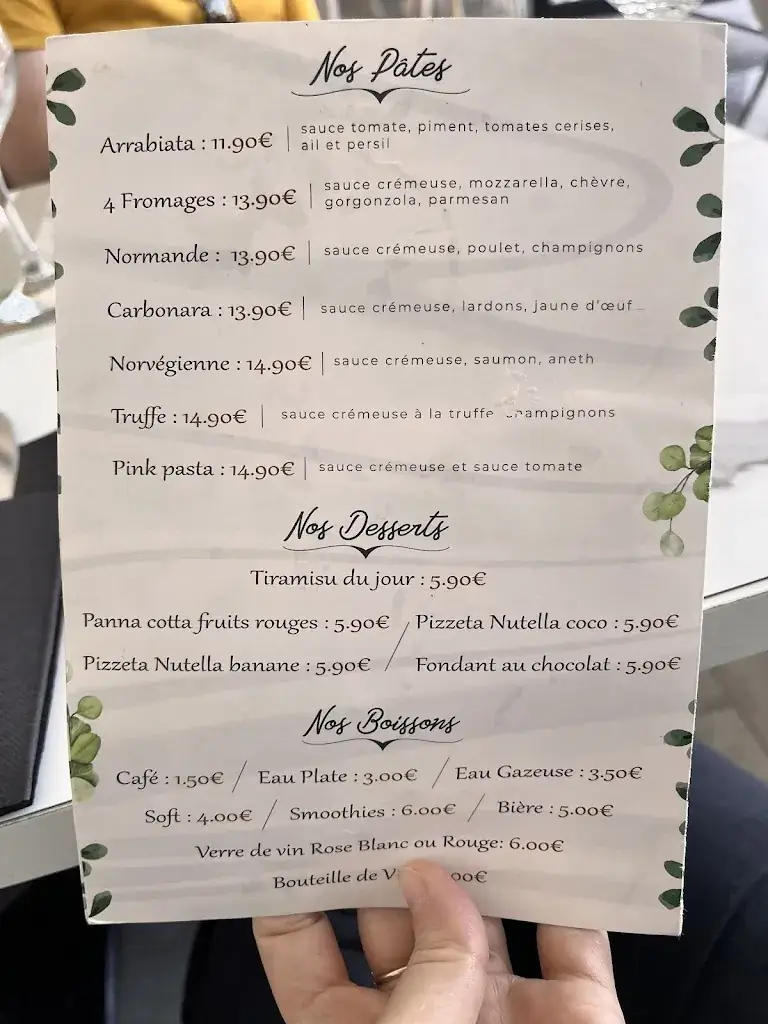 Nos Pâtes
Arrabiata : 11.90€ | sauce tomate, piment, tomates cerises,
ail et persil
4 Fromages : 13.90€ | sauce crémeuse, mozzarella, chèvre,
gorgonzola, parmesan
Normande : 13.90€ | sauce crémeuse, poulet, champignons
Carbonara : 13.90€ | sauce crémeuse, lardons, jaune d'œuf
Norvégienne : 14.90€ | sauce crémeuse, saumon, aneth
Truffe : 14.90€ | sauce crémeuse à la truffe
Pink pasta : 14.90€ | sauce crémeuse et sauce tomate
Nos Desserts
Tiramisu du jour : 5.90€
Panna cotta fruits rouges : 5.90€ / Pizzeta Nutella coco : 5.90€
Pizzeta Nutella banane : 5.90€ / Fondant au chocolat : 5.90€
Nos Boissons
Café : 1.50€ / Eau Plate : 3.00€ / Eau Gazeuse : 3.50€
Soft : 4.00€ / Smoothies : 6.00€ / Bière : 5.00€
Verre de vin Rose Blanc ou Rouge: 6.00€
Bouteille de